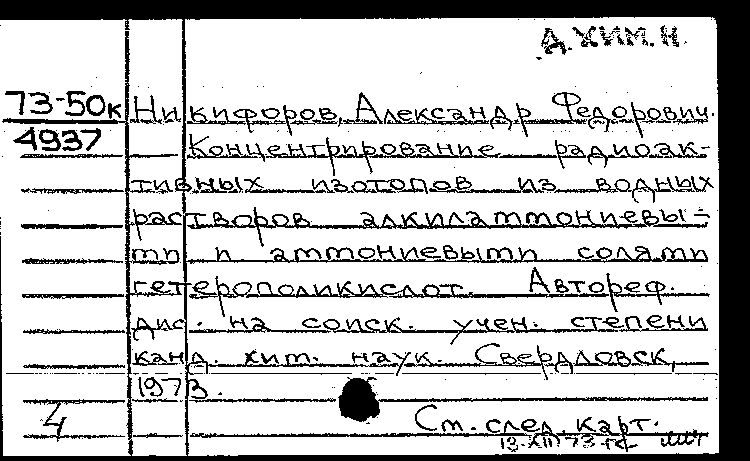 Д. ХИМ. Н.
73-50к Никифоров, Александр Федорович.
4937 Концентрирование радиоак-
тивных изотопов из водных
растворов алкиламмониевы-
ми и аммониевыми солями
гетерополикислот. Автореф.
дис. на соиск. учен. степени
канд. хим. наук. Свердловск,
1973.
4 См. след. карт.
13.XII 73